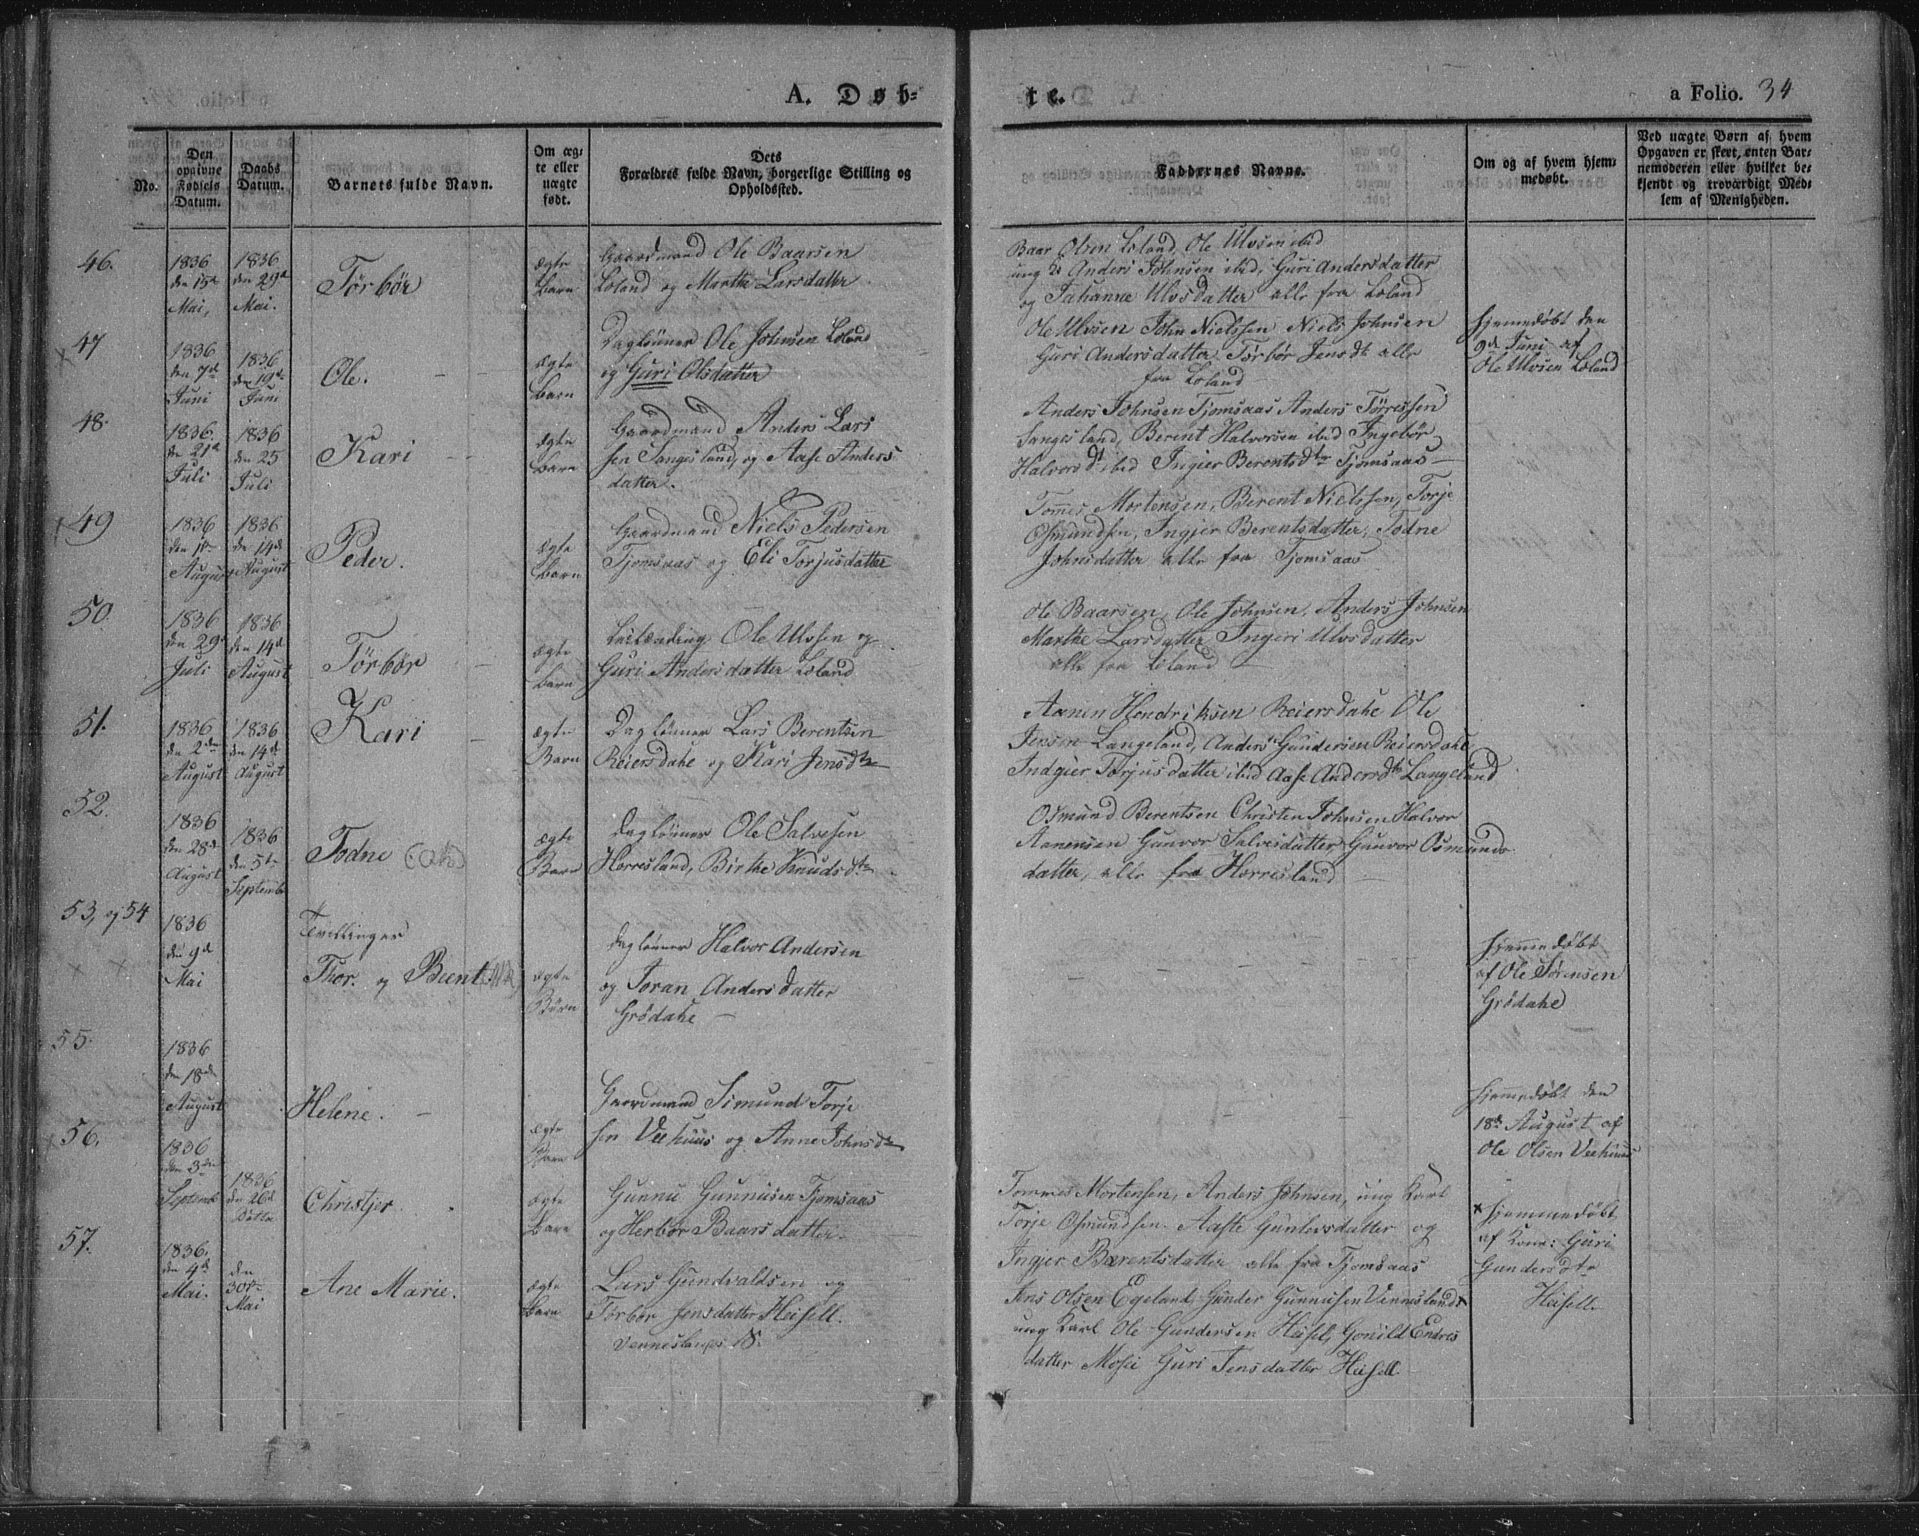 A. Døb-
te.
a Folio. 34
No.
Den opgivne Fødsels Datum.
Daabs Datum.
Barnets fulde Navn.
Om ægte eller uægte født.
Dets
Forældres fulde Navn, borgerlige Stilling og
Opholdssted.
Faddernes Navne.
Om og af hvem hjemmedøbt.
Ved uægte Børn af hvem
Opgaven er skeet, enten Barnemoderen eller hvilket bekjendt og troværdigt Medlem af Menigheden.
46.
1836
den 15de
Mai,
1836
den 29de
Mai.
Tørbør
ægte
Barn
Gaardmand Ole Baarsen
Loland og Marthe Larsdatter
Baar Olsen Loland, Ole Ulvsen ibid
ung K. Anders Johnsen ibid, Guri Andersdatter
og Johanne Ulvsdatter alle fra Loland
47
1836
den 7de
Juni
1836
den 19de
Juni
Ole.
ægte
Barn
Dagleiner Ole Johnsen Loland
og Guri Olsdatter
Ole Ulvsen John Nielssen Niels Johnsen
Guri Andersdatter Tørbør Jensdt. alle
fra Loland
Hjemmedøbt den
9de Juni af
Ole Ulvsen Loland
48.
1836.
den 21de
Juli
1836
den 25
Juli
Kari
ægte
Barn
Gaardmand Anders Lars
sen Sangesland, og Aase Anders
datter.
Anders Johnsen Tjomsaas Anders Tørressen
Sangesland, Berent Halvorsen ibid Ingebør
Halvorsdt ibid Ingier Berentsdtr Tjomsaas
49
1836
den 1ste
August
1836
den 14de
August
Peder.
ægte
Barn
Gaardmand Niels Pedersen
Tjomsaas og Eli Torjusdatter
Tommes Mortensen, Berent Nielssen, Torje
Osmundsen, Ingier Berentsdatter, Todne
Johnsdatter alle fra Tjomsaas
50.
1836
den 29
Juli
1836
den 14de
August
Tørbør
ægte
Barn
Ole Ulvsen og
Guri Andersdatter Loland
Ole Baarsen, Ole Johnsen, Anders Johnsen
Marthe Larsdatter Ingeri Ulvsdatter
alle fra Loland
51.
1836
den 2den
August
1836
den 14de
August
Kari
ægte
Barn
Dagleiner Lars Berentsen
Reiersdahl og Kari Jensdtr
Aanen Hendriksen Reiersdahl Ole
Jensen Langeland, Anders Gundersen Reiersdahl
Indgier Torjusdatter ibid Aase Andersdtr Langeland
52.
1836
den 28de
August
1836
den 5te
September
Todne
ægte
Barn
Dagleiner Ole Salvesen
Horresland, Birthe Knudsdtr
Osmund Berentsen Christen Johnsen Halvor
Aanensen Gunvor Salvesdatter Gunvor Osmunds
datter, alle fra Horresland
53, og 54
1836
den 9de
Mai
Tvillinger
Thor. og Beent
ægte
Børn
Dagleiner Halvor Andersen
og Joran Andersdatter
Grødahl
Hjemmedøbt
af Ole Sørensen
Grødahl
55.
1836
den 18de
August
Helene.
ægte
Barn
Gaardmand Simund Torje
sen Veehuus og Anne Johnsdtr
Hjemmedøbt den
18de August af
Ole Olsen Veehuus
56.
1836
den 3den
Septemb
1836
den 26de
Christjer.
ægte
Barn
Gunnu Gunnusen Tjomsaas
og Herbør Baarsdatter.
Tommes Mortensen, Anders Johnsen, ung Karl
Torje Osmundsen. Aaste Guntersdatter og
Ingjer Berentsdatter alle fra Tjomsaas
57.
1836.
den 4de
Mai.
den
30te
Mai
Ane Marie.
ægte
Barn
Lars Gundvaldsen og
Torbør Jensdatter Heisell.
Venneslands S.
Jens Olsen Egeland Gunder Gunnusen Vennesland x
ung Karl Ole Gundersen Heisel, Gonild Endres
datter Mosei Guri Jensdatter Heisell
x Hjemmedøbt
af Kone: Guri
Gundersdtr
Heisell.